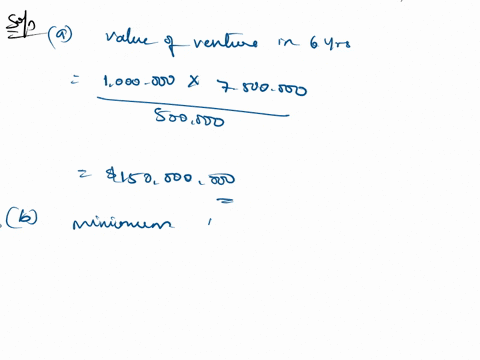 Soln
(a) value of venture in 6 yrs
= 1,000.000 × 7.500.000
500,000
= $150,000,000
(b) minimum